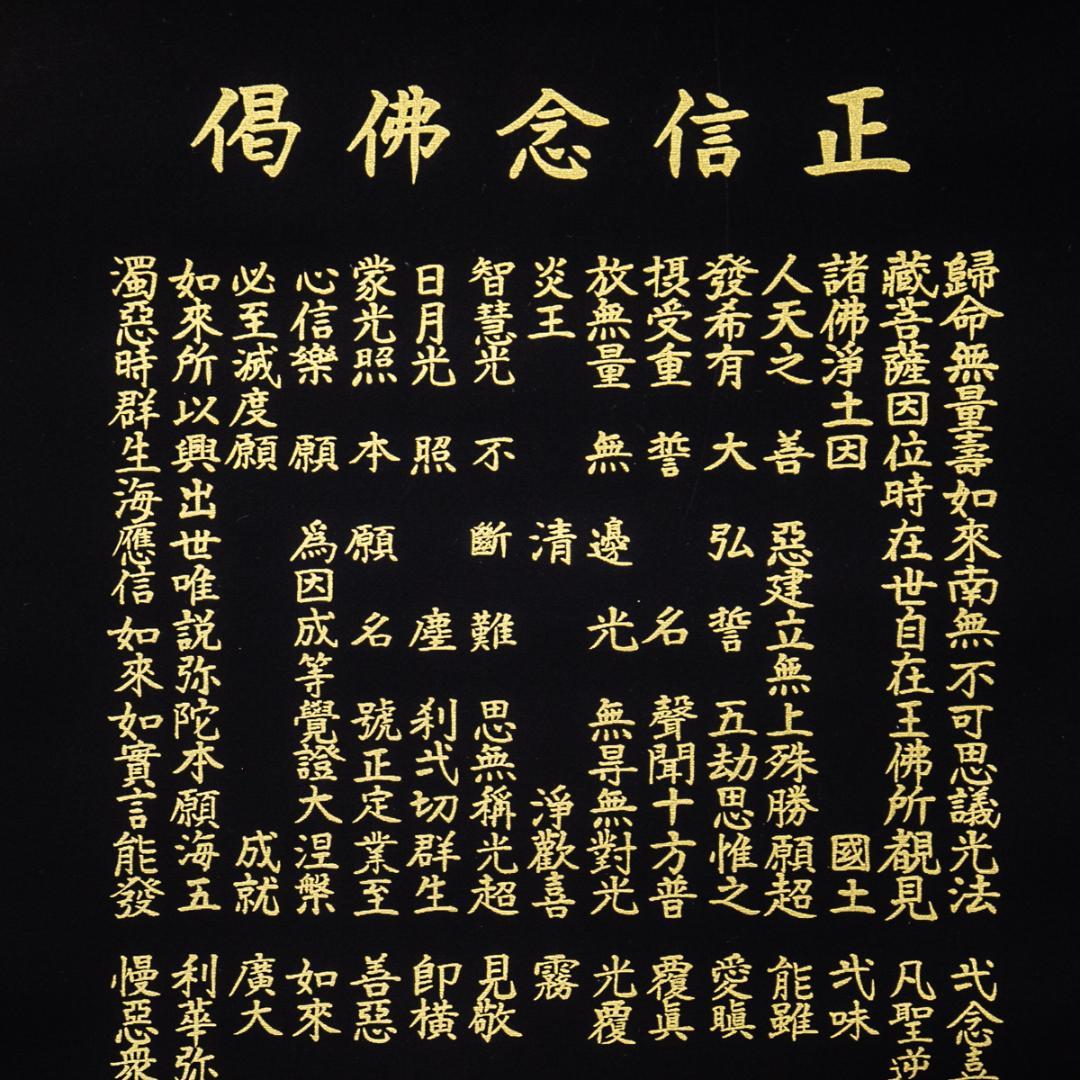 正信念佛偈
歸命無量壽如來南無不可思議光法
藏菩薩因位時在世自在王佛所覩見
諸佛淨土因國土
人天之善惡建立無上殊勝願超
發希有大弘誓五劫思惟之
摂受重誓名聲聞十方普
放無量無邊光無㝵無對光
炎王清淨歡喜
智慧光不斷難思無稱光超
日月光照塵刹弌切群生
蒙光照本願名號正定業至
心信樂願為因成等覺證大涅槃
必至滅度願成就
如來所以興出世唯説弥陀本願海五
濁惡時群生海應信如來如實言能發
弌念喜
凡聖逆
弌味
能雖
愛瞋
覆眞
光覆
霧
見敬
即横
善惡
如來
廣大
利華弥
慢惡衆